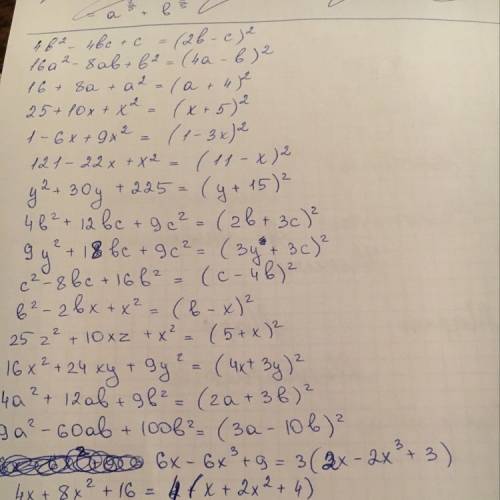 = a⁵ + b⁵
4b² - 4bc + c = (2b - c)²
16a² - 8ab + b² = (4a - b)²
16 + 8a + a² = (a + 4)²
25 + 10x + x² = (x + 5)²
1 - 6x + 9x² = (1 - 3x)²
121 - 22x + x² = (11 - x)²
y² + 30y + 225 = (y + 15)²
4b² + 12bc + 9c² = (2b + 3c)²
9y² + 18bc + 9c² = (3y + 3c)²
c² - 8bc + 16b² = (c - 4b)²
b² - 2bx + x² = (b - x)²
25z² + 10xz + x² = (5 + x)²
16x² + 24xy + 9y² = (4x + 3y)²
4a² + 12ab + 9b² = (2a + 3b)²
9a² - 60ab + 100b² = (3a - 10b)²
6x - 6x³ + 9 = 3(2x - 2x³ + 3)
4x + 8x² + 16 = 4(x + 2x² + 4)